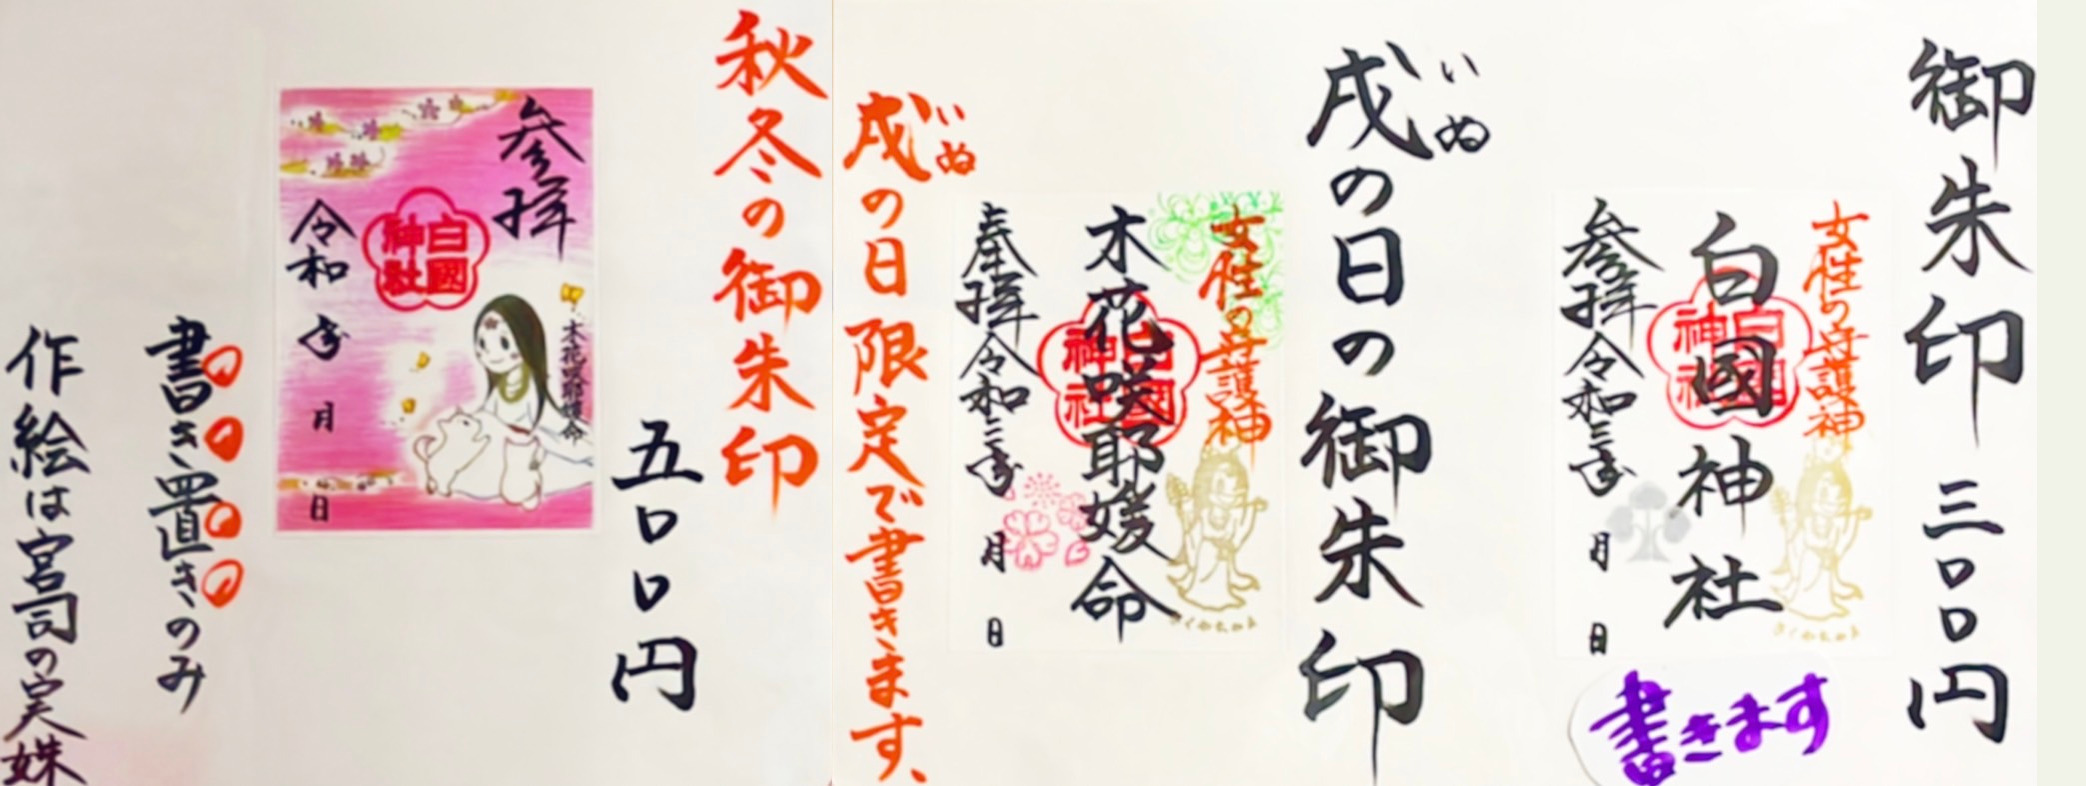 御朱印 三〇〇円
女性の守護神
白國神社
白國神社
参拝 令和三年 月 日
書きます
戌の日の御朱印
いぬ
女性の守護神
木花咲耶媛命
白國神社
奉拝 令和三年 月 日
戌の日限定で書きます、
いぬ
秋冬の御朱印
五〇〇円
参拝
木花咲耶媛命
白國神社
令和 年 月 日
書き置きのみ
作絵は宮司の実妹